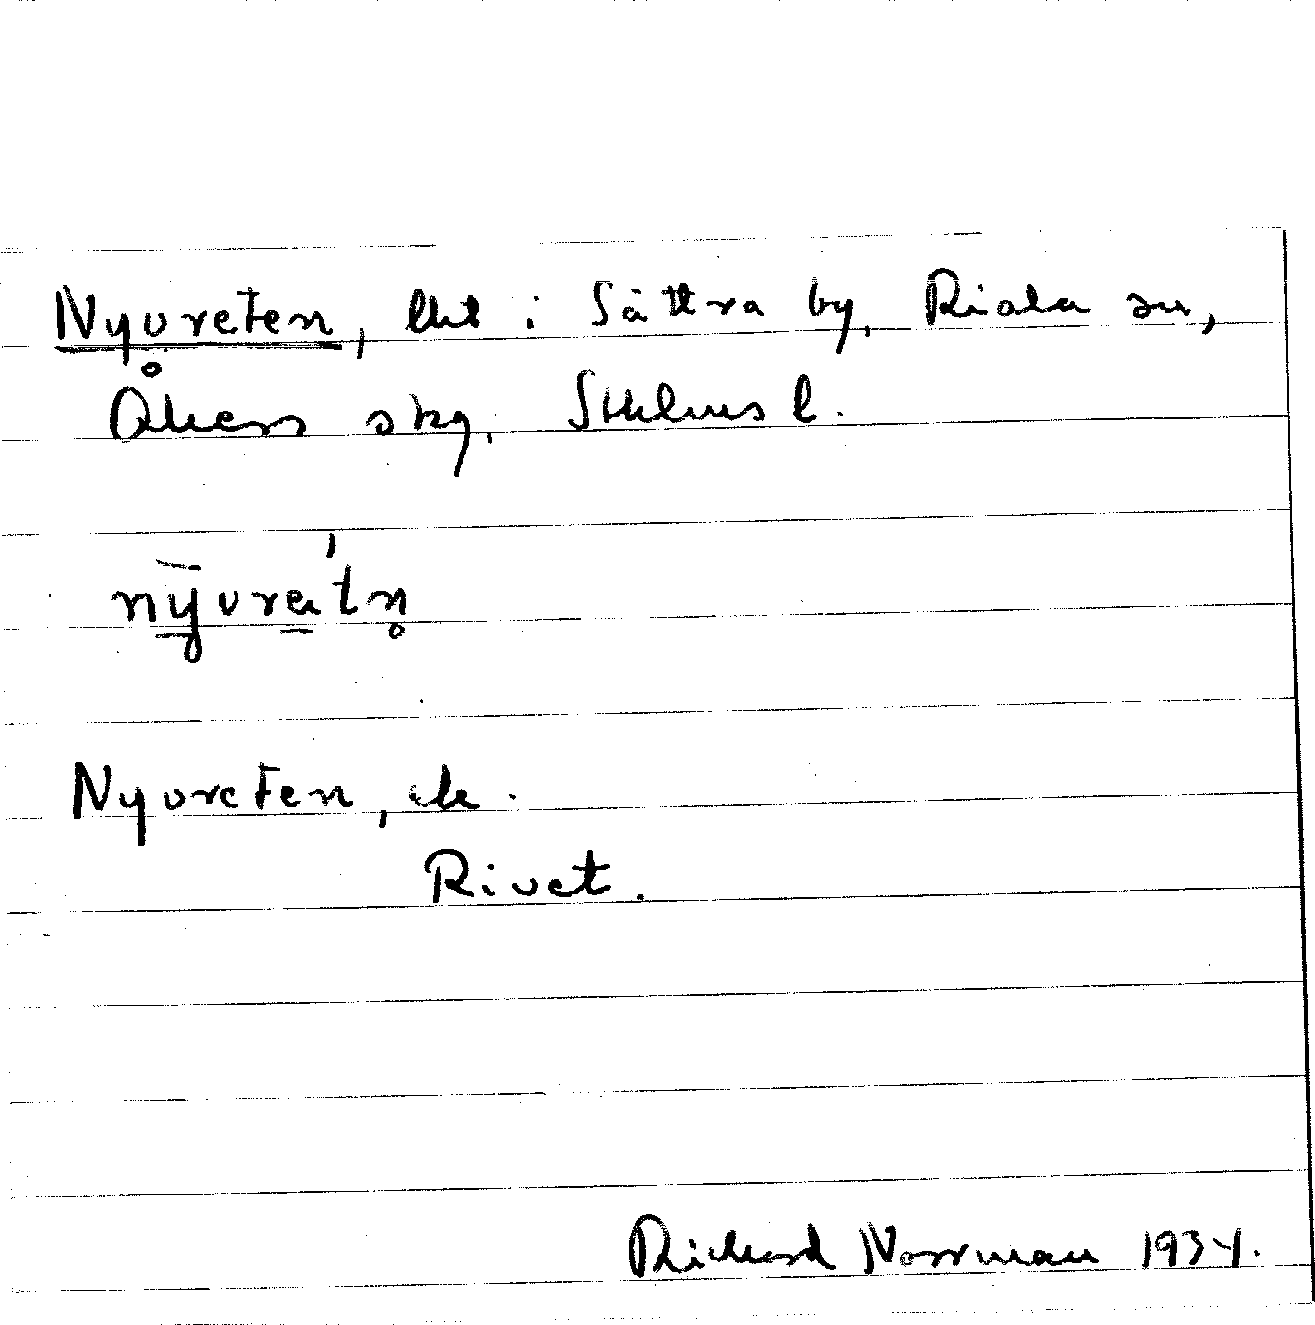 Nyvreten, lht i Sättra by, Riala sn,
Åkers skg, Sthlms l.
nyvretn̥
Nyvreten, le.
Rivet.
Richard Norrman 1934.